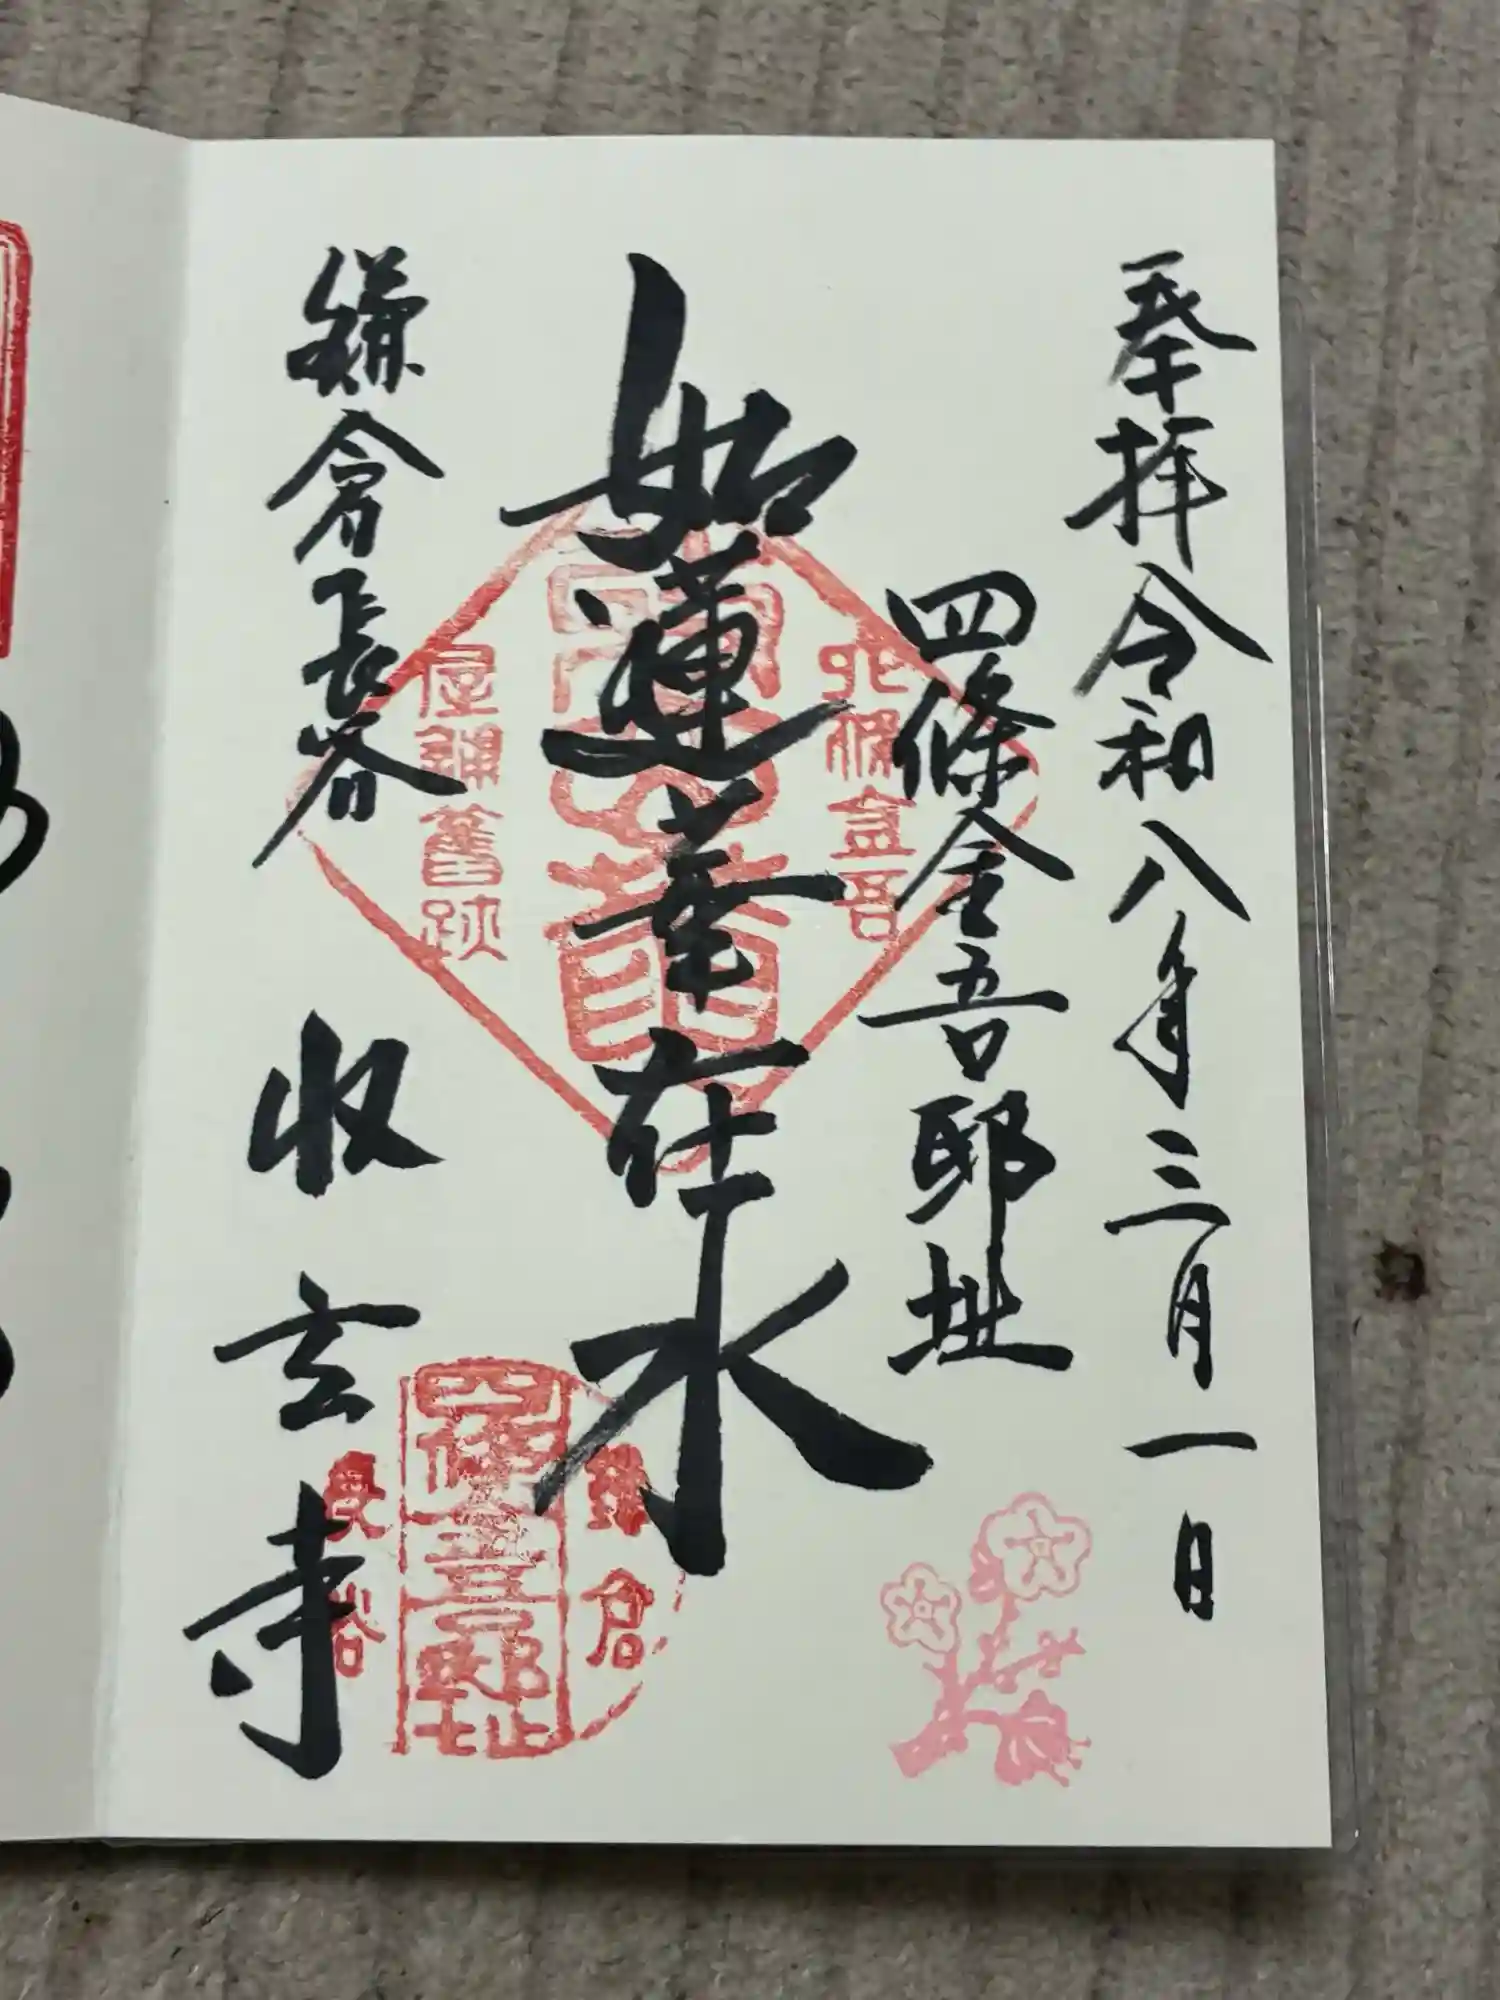 奉拝令和八年三月一日
四條金吾邸址
如蓮華在水
鎌倉長谷
収玄寺
屋舗舊跡
鎌倉
長谷
四條金吾邸址